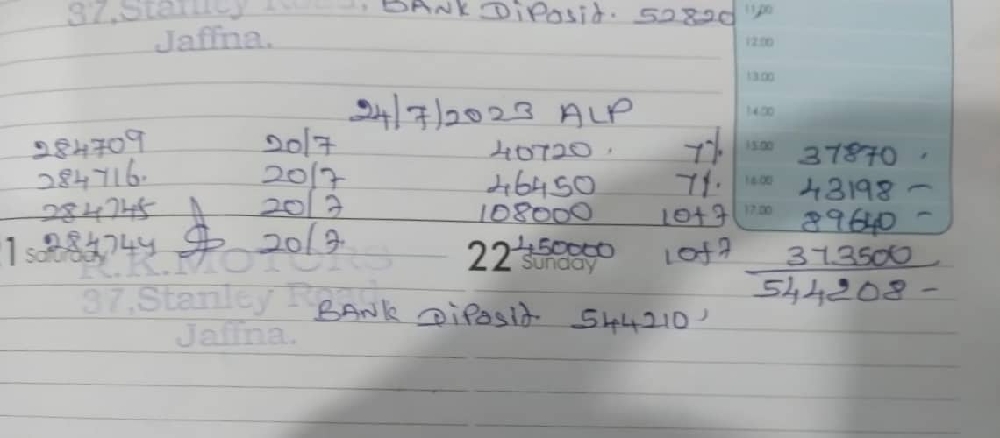 37, Stanley Road, BANK Diposit. 52820
Jaffna.
11.00
12.00
13.00
24/7/2023 ALP
14.00
284709 20/7 40720. 7% 15.00 37870.
284716. 20/7 46450 7%. 16.00 43198-
284745 20/7 108000 10+7 17.00 89640-
1 Saturday 284744 20/7. 22 Sunday 450000 10+7 373500
R.K.MOTORS
544208-
37, Stanley Road BANK Diposit 544210
Jaffna.